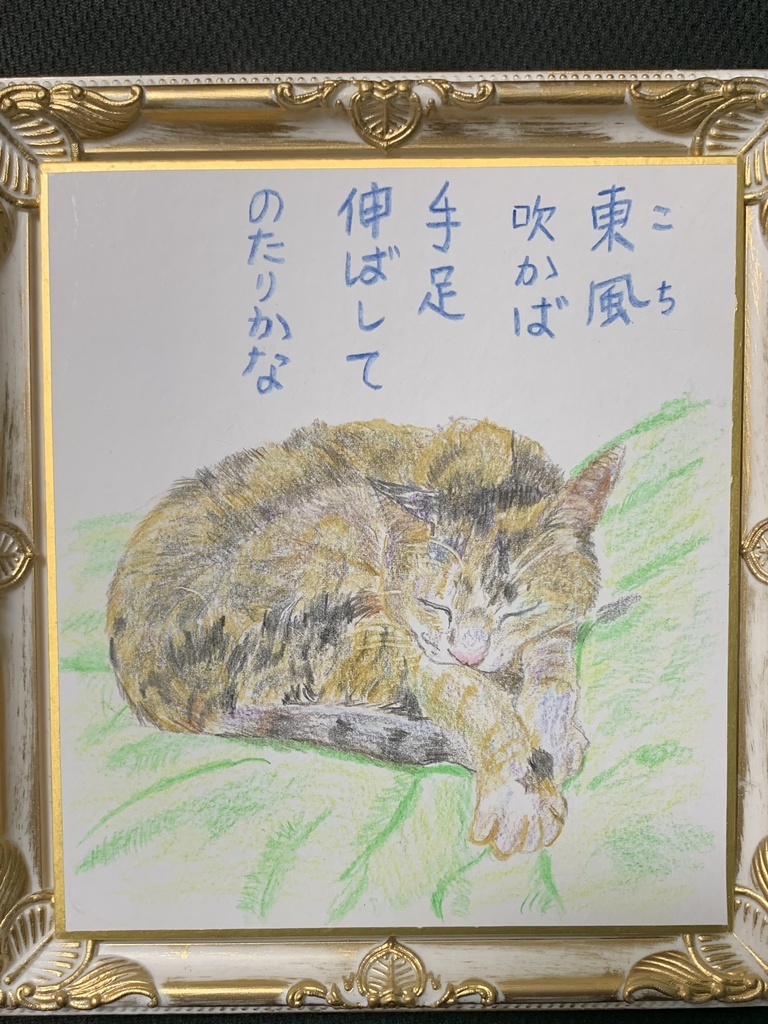 東風
こち
吹かば
手足
伸ばして
のたりかな